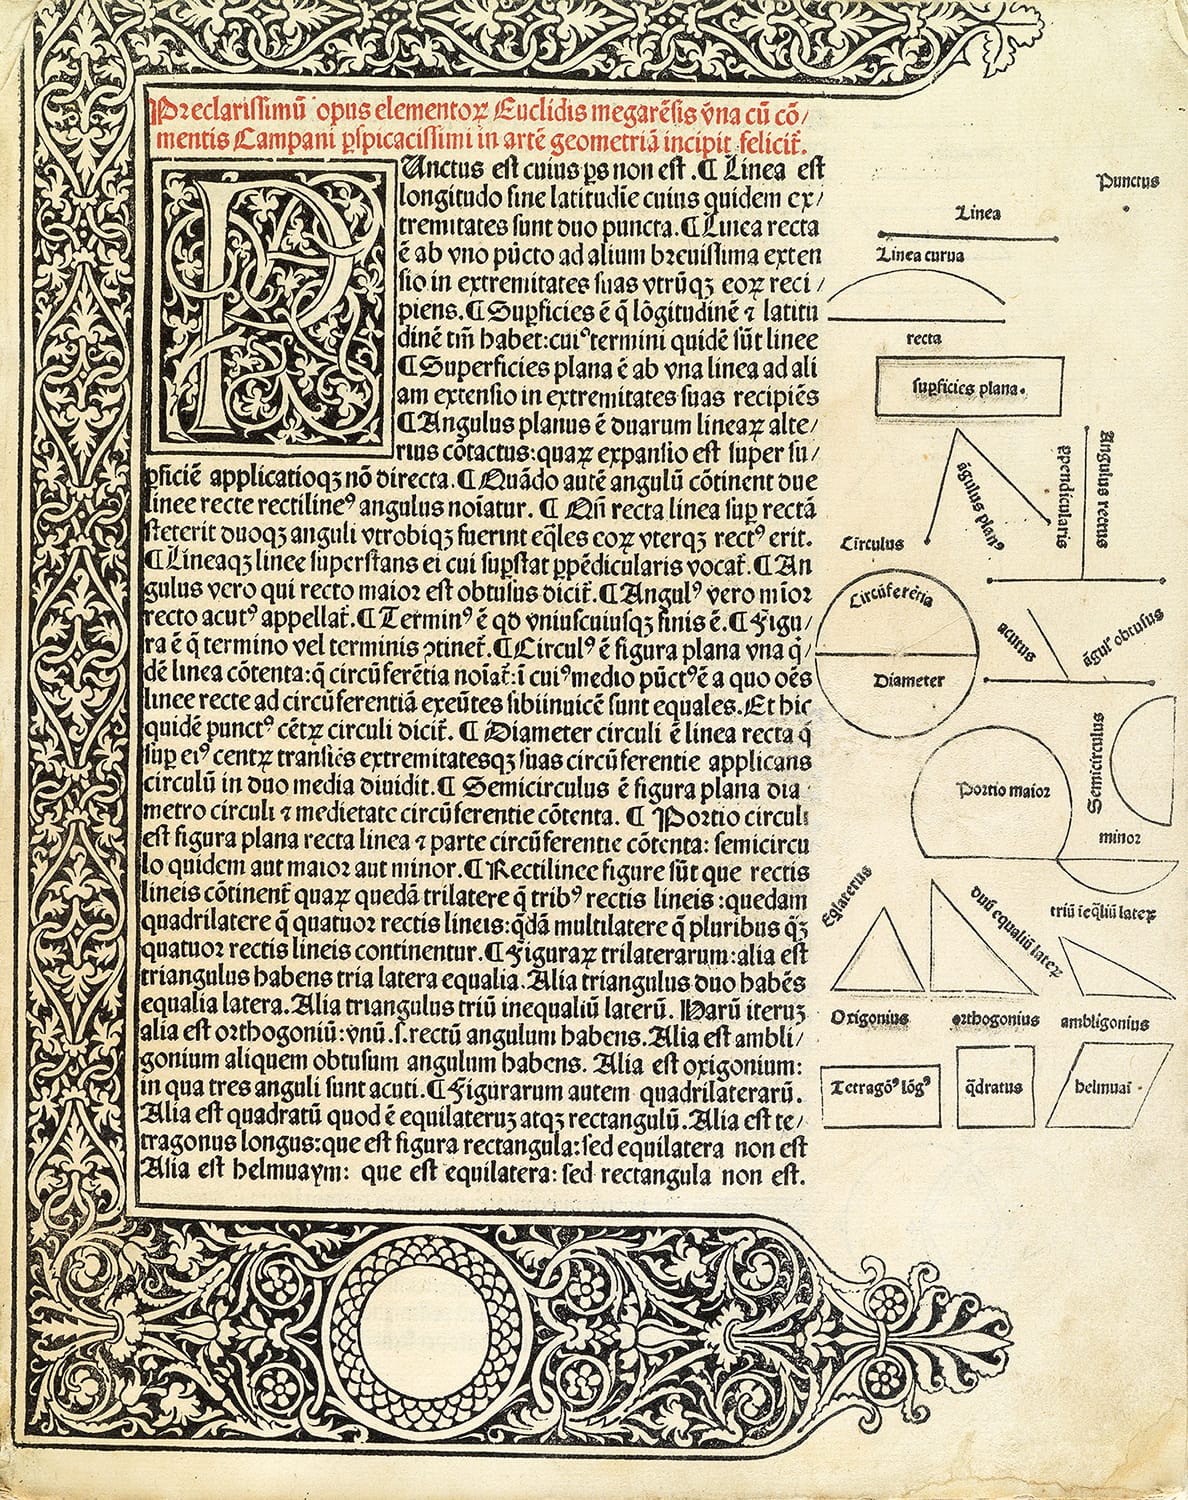 Preclarissimū opus elementoꝝ Euclidis megarēsis v̄na cū cō⸝
mentis Campani ꝑspicacissimi in artē geometriā incipit felicit̄.
PUnctus est cuius ꝑs non est. ¶ Linea est
longitudo sine latitudīe cuius quidem ex⸝
tremitates sunt duo puncta. ¶ Linea recta
ē ab vno pūcto ad alium breuissima exten
sio in extremitates suas vtrūqꝫ eoꝝ reci⸝
piens. ¶ Suꝑficies ē q̄ lōgitudinē ⁊ latitu
dinē tm̄ habet: cuiꝰ termini quidē sūt linee
¶ Superficies plana ē ab vna linea ad ali
am extensio in extremitates suas recipiēs
¶ Angulus planus ē duarum lineaꝝ alte⸝
rius cōtactus: quaꝝ expansio est super su⸝
ꝑficiē applicatioqꝫ nō directa. ¶ Quādo autē angulū cōtinent due
linee recte rectilineꝰ angulus noīatur. ¶ Qn̄ recta linea suꝑ rectā
steterit duoqꝫ anguli vtrobiqꝫ fuerint eq̄les eoꝝ vterqꝫ rectꝰ erit.
¶ Lineaqꝫ linee superstans ei cui suꝑstat ꝑpēdicularis vocat̄. ¶ An
gulus vero qui recto maior est obtusus dicit̄. ¶ Angulꝰ vero mīor
recto acutꝰ appellat̄. ¶ Terminꝰ ē qd vniuscuiusqꝫ finis ē. ¶ Figu⸝
ra ē q̄ termino vel terminis ꝯtinet̄. ¶ Circulꝰ ē figura plana vna q̄⸝
dē linea cōtenta: q̄ circūferētia noīat̄: ī cuiꝰ medio pūctꝰ ē a quo oēs
linee recte ad circūferentiā exeūtes sibiinuicē sunt equales. Et hic
quidē punctꝰ cētꝝ circuli dicit̄. ¶ Diameter circuli ē linea recta q̄
suꝑ eiꝰ centꝝ transiēs extremitatesqꝫ suas circūferentie applicans
circulū in duo media diuidit. ¶ Semicirculus ē figura plana dia
metro circuli ⁊ medietate circūferentie cōtenta. ¶ Portio circuli
est figura plana recta linea ⁊ parte circūferentie cōtenta: semicircu
lo quidem aut maior aut minor. ¶ Rectilinee figure sūt que rectis
lineis cōtinent̄ quaꝝ quedā trilatere q̄ tribꝰ rectis lineis: quedam
quadrilatere q̄ quatuor rectis lineis: q̄dā multilatere q̄ pluribus q̄ꝫ
quatuor rectis lineis continentur. ¶ Figuraꝝ trilaterarum: alia est
triangulus habens tria latera equalia. Alia triangulus duo habēs
equalia latera. Alia triangulus triū inequaliū laterū. Harū iteruꝫ
alia est orthogoniū: vnū .s. rectū angulum habens. Alia est ambli⸝
gonium aliquem obtusum angulum habens. Alia est oxigonium:
in qua tres anguli sunt acuti. ¶ Figurarum autem quadrilaterarū.
Alia est quadratū quod ē equilateruꝫ atqꝫ rectangulū. Alia est te⸝
tragonus longus: que est figura rectangula: sed equilatera non est
Alia est helmuaym: que est equilatera: sed rectangula non est.
Punctus
Linea
Linea curua
recta
suꝑficies plana.
āgulus planꝰ
ꝑpendicularis
Angulus rectus
Circulus
Circūferētia
Diameter
acutus
āgulꝰ obtusus
Portio maior
Semicirculus
minor
Eq̄laterus
duū equaliū lateꝝ
triū īeq̄liū lateꝝ
Oxigonius
orthogonius
ambligonius
Tetragōꝰ lōgꝰ
q̄dratus
helmuaī